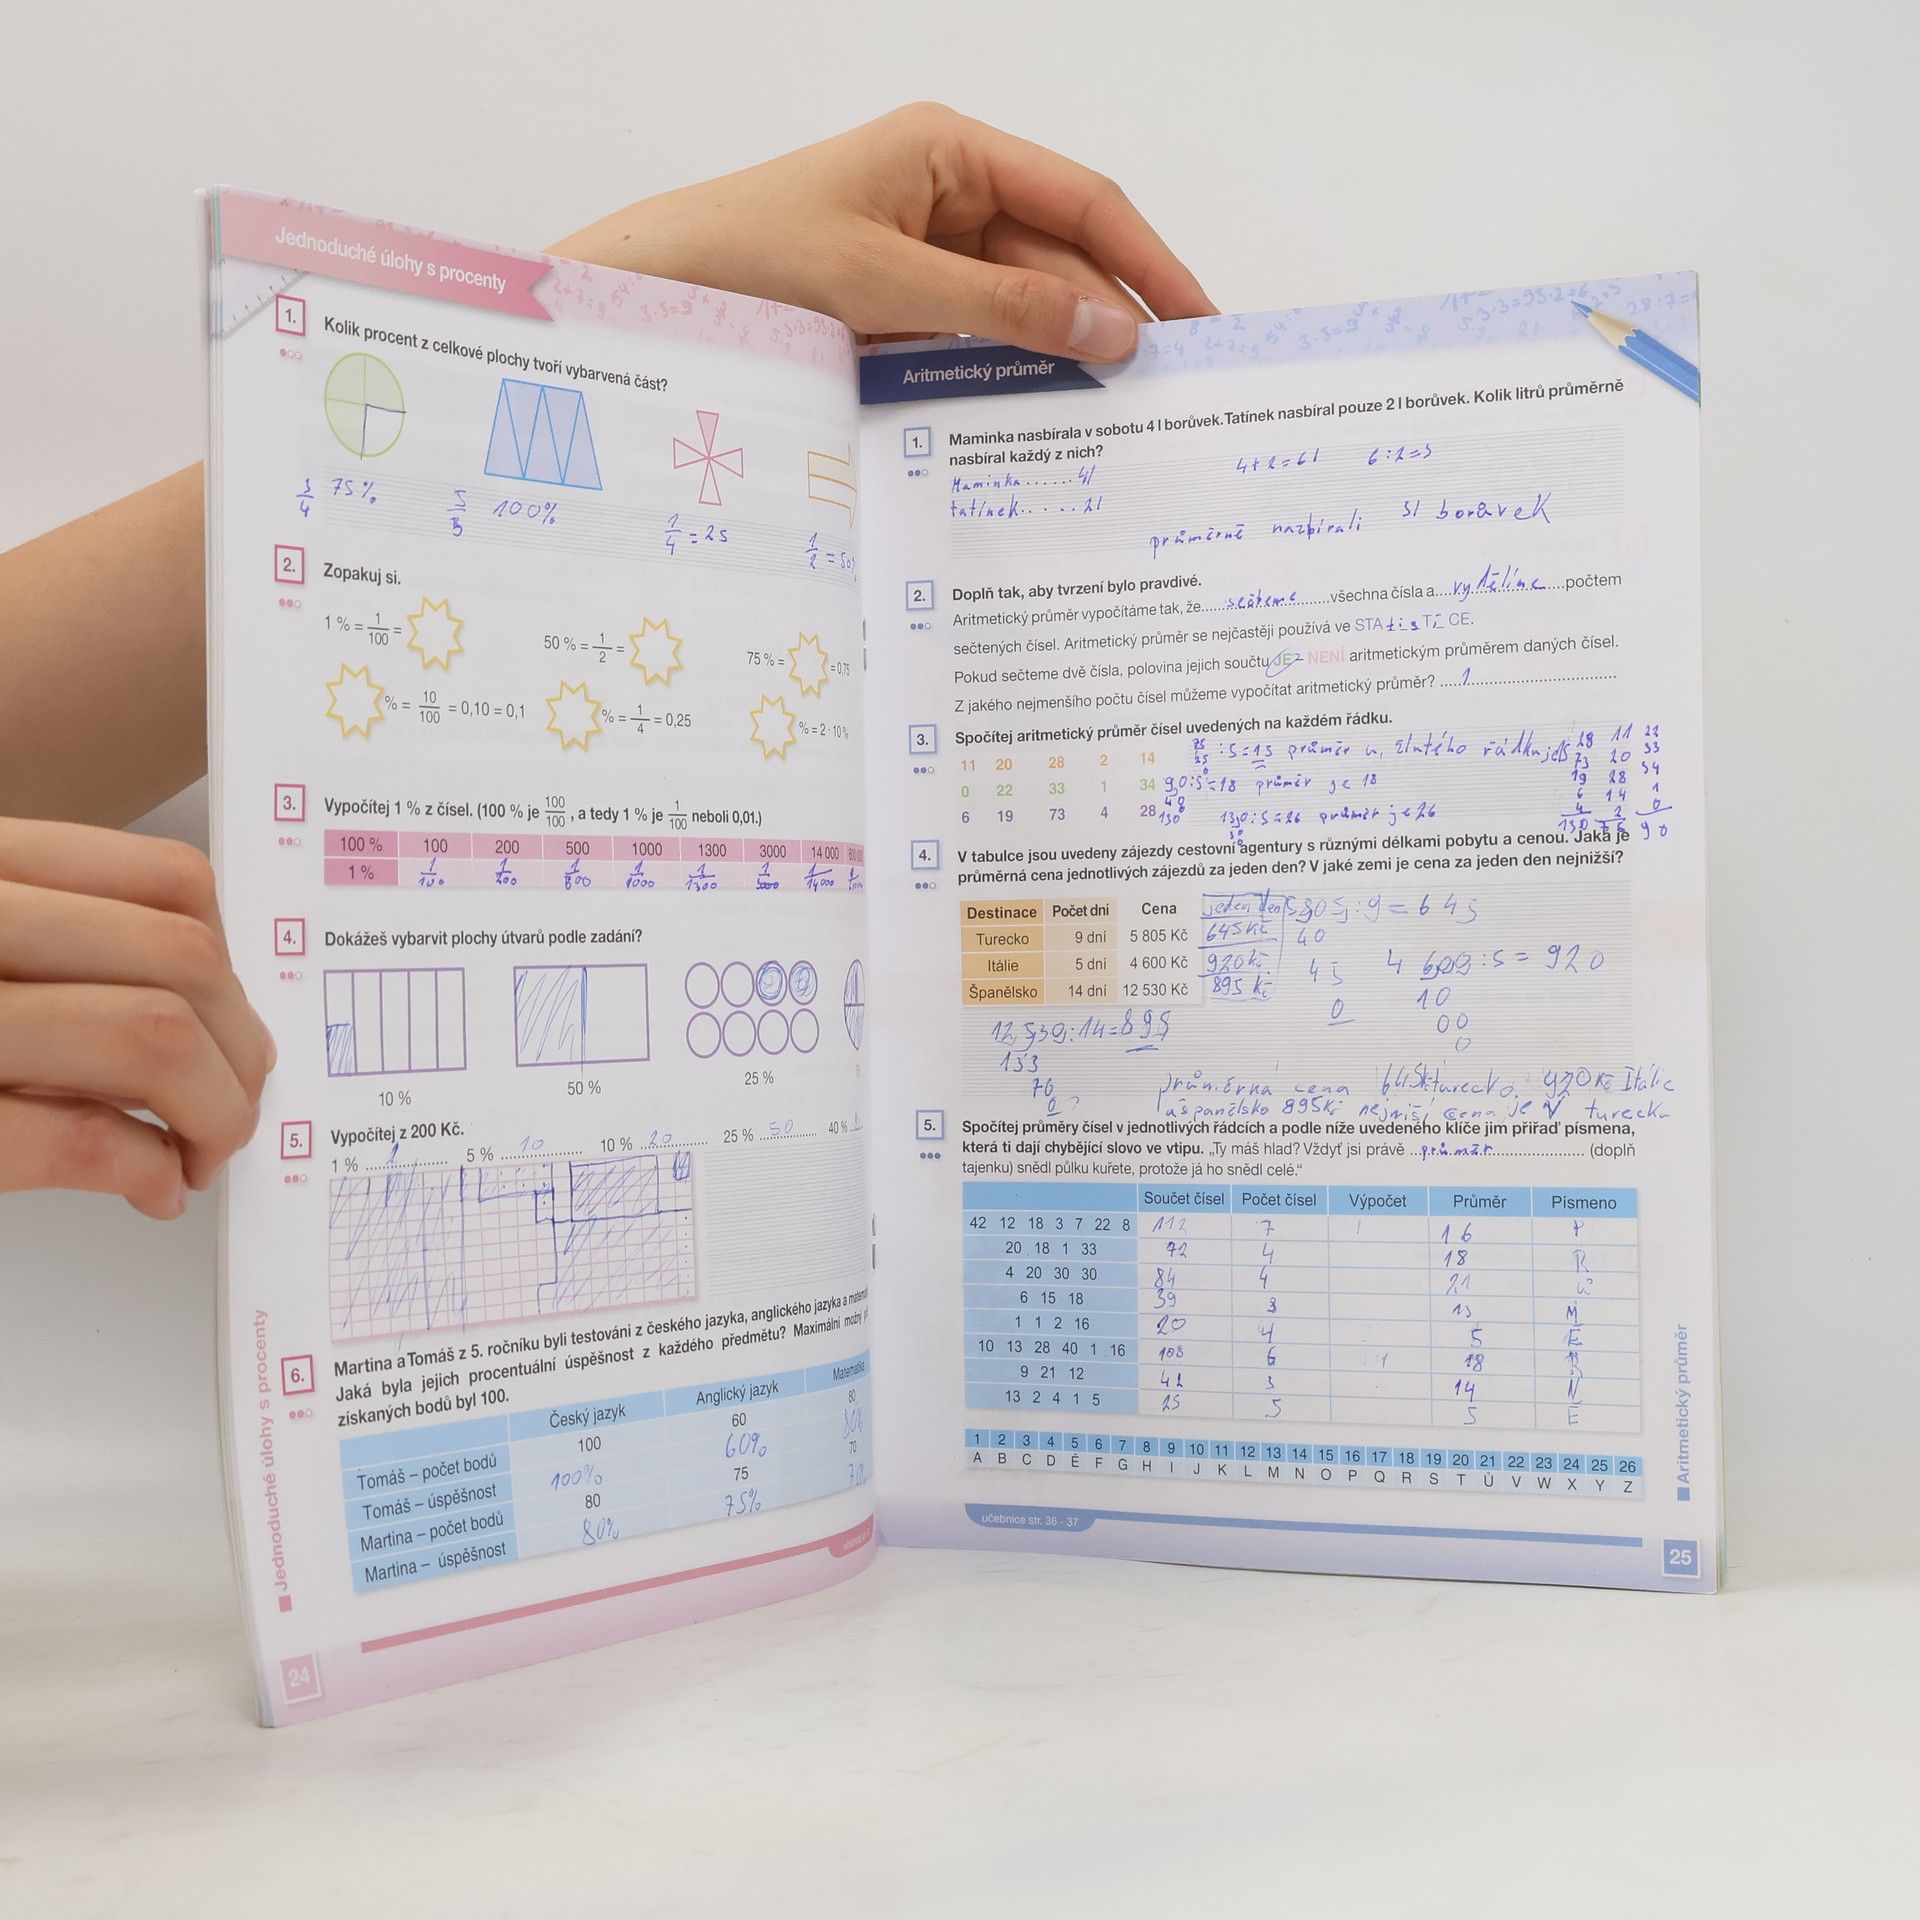 Jednoduché úlohy s procenty
1.
Kolik procent z celkové plochy tvoří vybarvená část?
3/4 75%
100%
1/4 = 25
1/2 = 50%
2.
Zopakuj si.
1 % = 1/100 =
50 % = 1/2 =
75 % = = 0,75
% = 10/100 = 0,10 = 0,1
% = 1/4 = 0,25
% = 2 · 10 %
3.
Vypočítej 1 % z čísel. (100 % je 100/100, a tedy 1 % je 1/100 neboli 0,01.)
100 % 100 200 500 1000 1300 3000 14 000
1 % 1/100 1/200 1/500 1/1000 1/1300 1/3000 1/14000
4.
Dokážeš vybarvit plochy útvarů podle zadání?
10 %
50 %
25 %
5.
Vypočítej z 200 Kč.
1 % 5 % 10 10 % 20 25 % 50 40 %
6.
Martina a Tomáš z 5. ročníku byli testováni z českého jazyka, anglického jazyka a
Jaká byla jejich procentuální úspěšnost z každého předmětu? Maximální možný
získaných bodů byl 100.
Český jazyk Anglický jazyk Matematika
Tomáš – počet bodů 100 60 80
Tomáš – úspěšnost 100% 60% 80%
Martina – počet bodů 80 75 70
Martina – úspěšnost 80% 75%
Jednoduché úlohy s procenty
24
Aritmetický průměr
1.
Maminka nasbírala v sobotu 4 l borůvek. Tatínek nasbíral pouze 2 l borůvek. Kolik litrů průměrně
nasbíral každý z nich?
Maminka......4l 4+2=6l 6:2=3
tatínek.....2l
průměrně nazbírali 3l borůvek
2.
Doplň tak, aby tvrzení bylo pravdivé.
Aritmetický průměr vypočítáme tak, že sečteme všechna čísla a vydělíme počtem
sečtených čísel. Aritmetický průměr se nejčastěji používá ve STAtisTiCE.
Pokud sečteme dvě čísla, polovina jejich součtu JE - NENÍ aritmetickým průměrem daných čísel.
Z jakého nejmenšího počtu čísel můžeme vypočítat aritmetický průměr? 1
3.
Spočítej aritmetický průměr čísel uvedených na každém řádku.
11 20 28 2 14 75:5=15 průměr
0 22 33 1 34 90:5=18 průměr je 18
6 19 73 4 28 130:5=26 průměr je 26
28 11 22
73 20 33
19 28 34
6 14 1
4 2 0
130 75 90
4.
V tabulce jsou uvedeny zájezdy cestovní agentury s různými délkami pobytu a cenou. Jaká je
průměrná cena jednotlivých zájezdů za jeden den? V jaké zemi je cena za jeden den nejnižší?
Destinace Počet dní Cena jeden den 5805:9=645
Turecko 9 dní 5 805 Kč 645Kč 40
Itálie 5 dní 4 600 Kč 920Kč 45 4600:5=920
Španělsko 14 dní 12 530 Kč 895 Kč 0 10
00
0
12530:14=895
133
70
0
průměrná cena 645Kč turecko, 920Kč Itálie
a španělsko 895Kč nejniší cena je V turecku
5.
Spočítej průměry čísel v jednotlivých řádcích a podle níže uvedeného klíče jim přiřaď písmena,
která ti dají chybějící slovo ve vtipu. „Ty máš hlad? Vždyť jsi právě průměr (doplň
tajenku) snědl půlku kuřete, protože já ho snědl celé.“
Součet čísel Počet čísel Výpočet Průměr Písmeno
42 12 18 3 7 22 8 112 7 16 P
20 18 1 33 72 4 18 R
4 20 30 30 84 4 21 Ů
6 15 18 39 3 13 M
1 1 2 16 20 4 5 Ě
10 13 28 40 1 16 108 6 18 R
9 21 12 42 3 14 N
13 2 4 1 5 25 5 Ě
1 2 3 4 5 6 7 8 9 10 11 12 13 14 15 16 17 18 19 20 21 22 23 24 25 26
A B C D Ě F G H I J K L M N O P Q R S T Ů V W X Y Z
učebnice str. 36 - 37
Aritmetický průměr
25